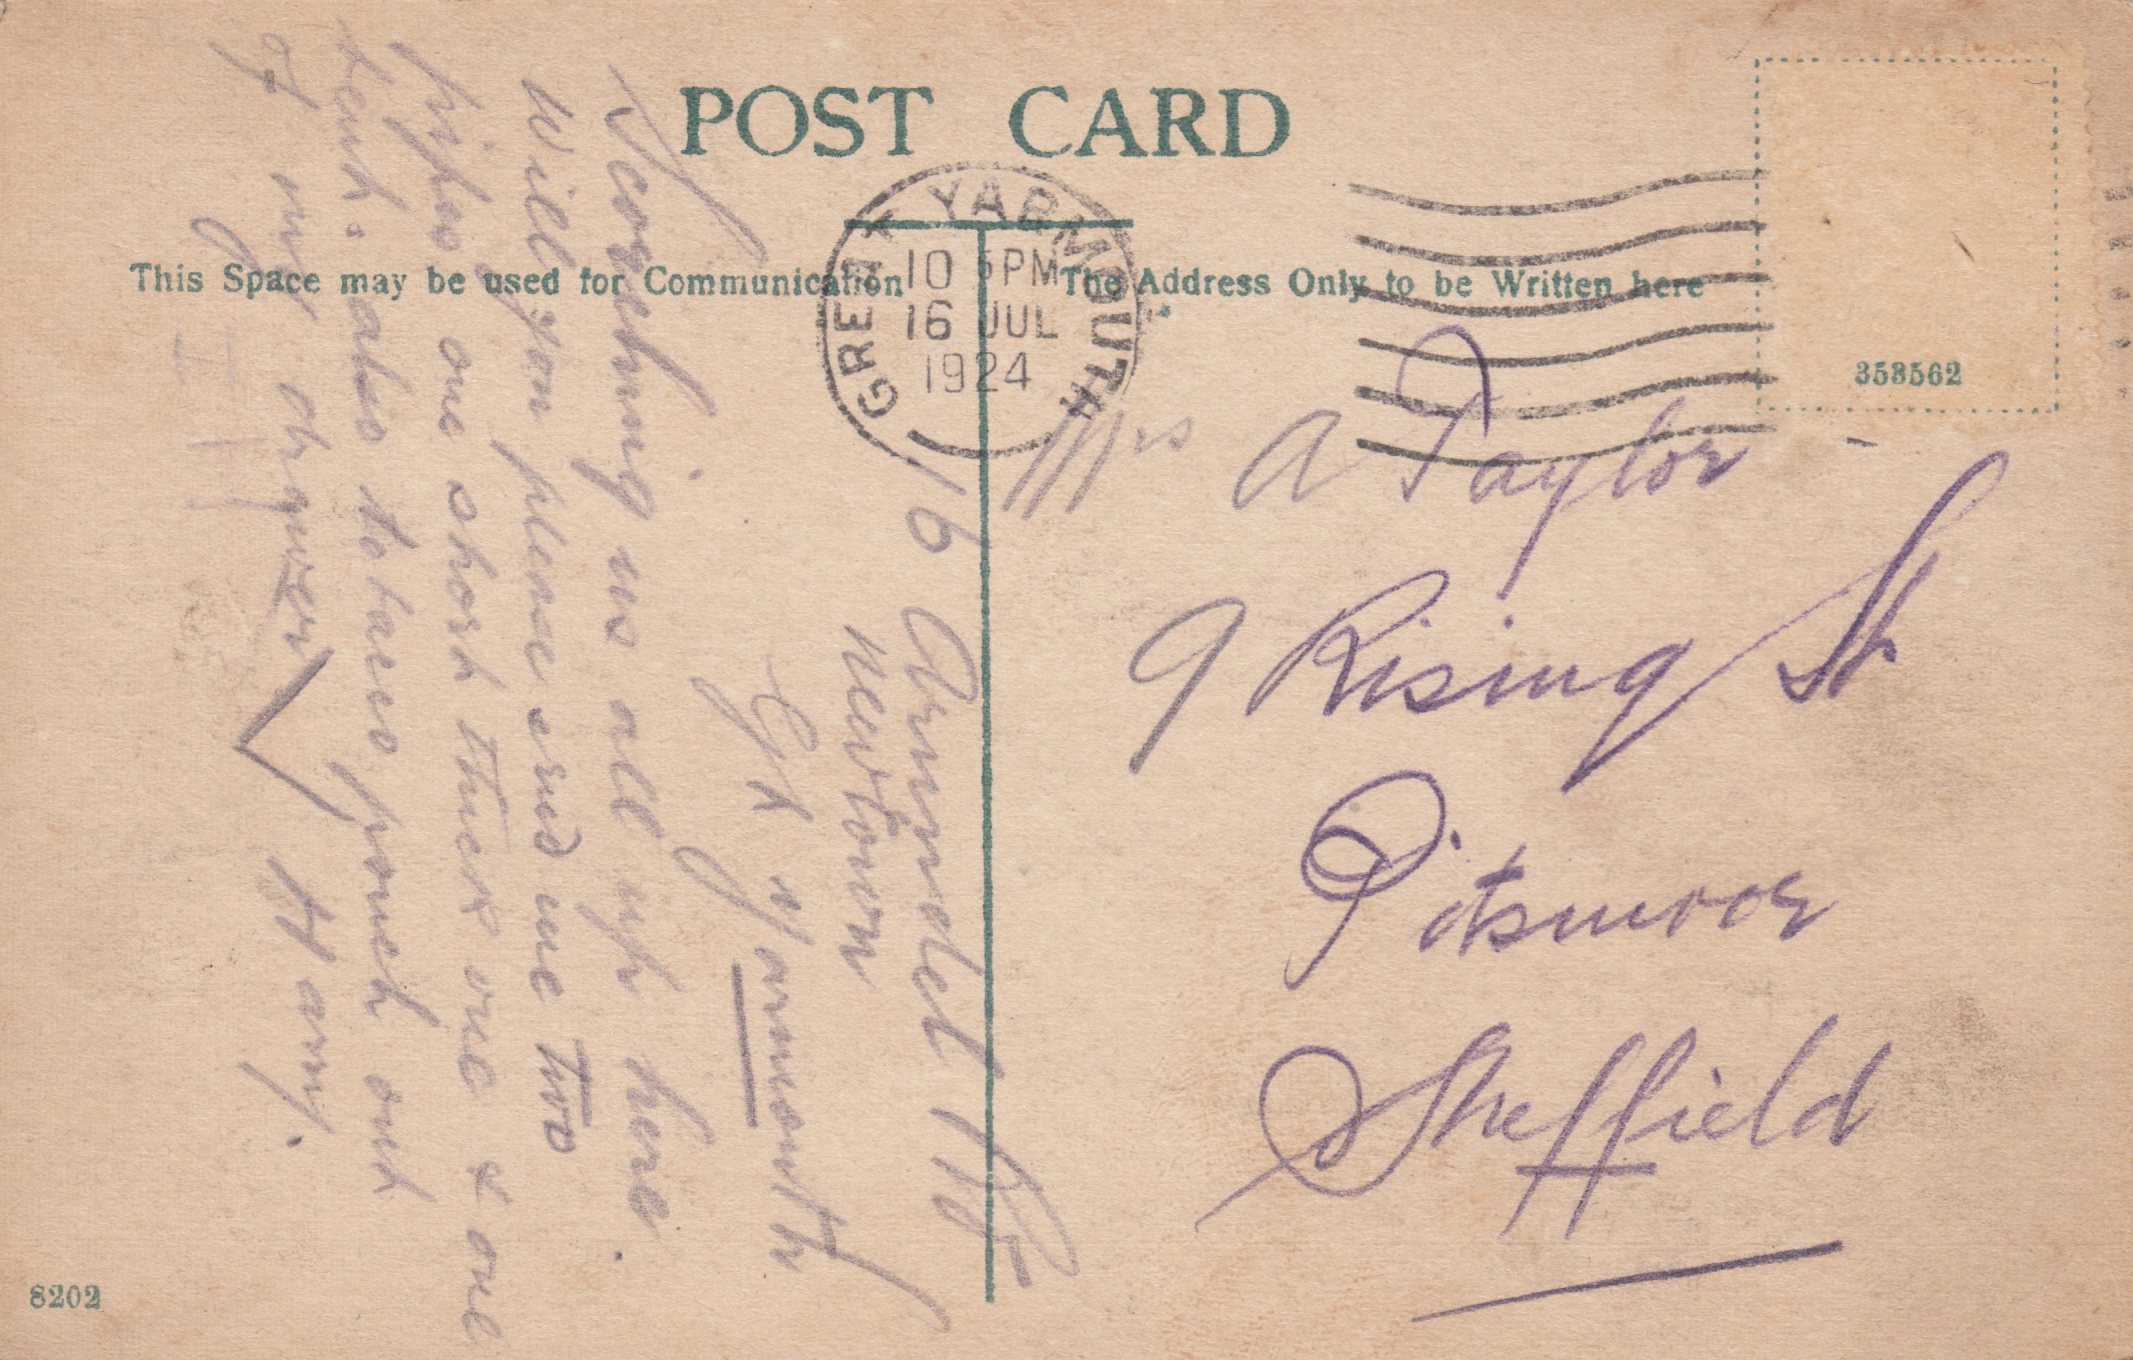 POST CARD
This Space may be used for Communication
The Address Only to be Written here
GREAT YARMOUTH
10 15 PM
16 JUL
1924
353562
Mrs A Taylor
9 Rising St
Pitsmoor
Sheffield
16 Arundel Rd
Newtown
Gt Yarmouth
Scorching us all up here.
Will you please send me two
pipes one short thick one & one
also tobacco pouch out
of my drawer
Harry.
8202